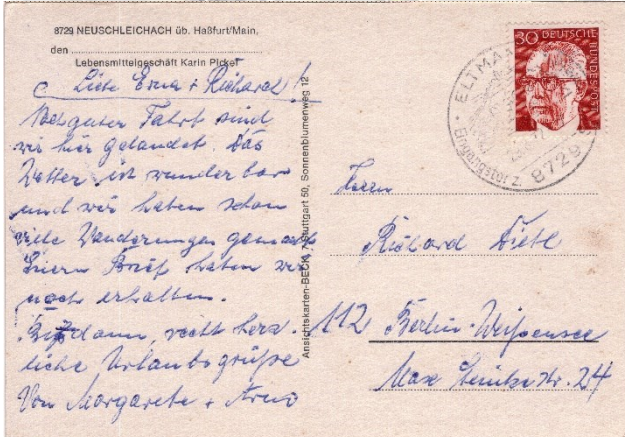 8729 NEUSCHLEICHACH üb. Haßfurt/Main,
den
Lebensmittelgeschäft Karin Pickel
Liebe Erna + Richard!
Nach guter Fahrt sind
wir hier gelandet. Das
Wetter ist wunderbar
und wir haben schon
viele Wanderungen gemacht
Euern Brief haben wir
noch erhalten.
Bis dann, recht herz-
liche Urlaubsgrüße
Von Margarete + Arno
Ansichtskarten-BECK, 7 Stuttgart 50, Sonnenblumenweg 12
30 DEUTSCHE BUNDESPOST
ELTMA
8729
Herrn
Richard Dietl
112 Berlin-Weißensee
Max Steinke Str. 24